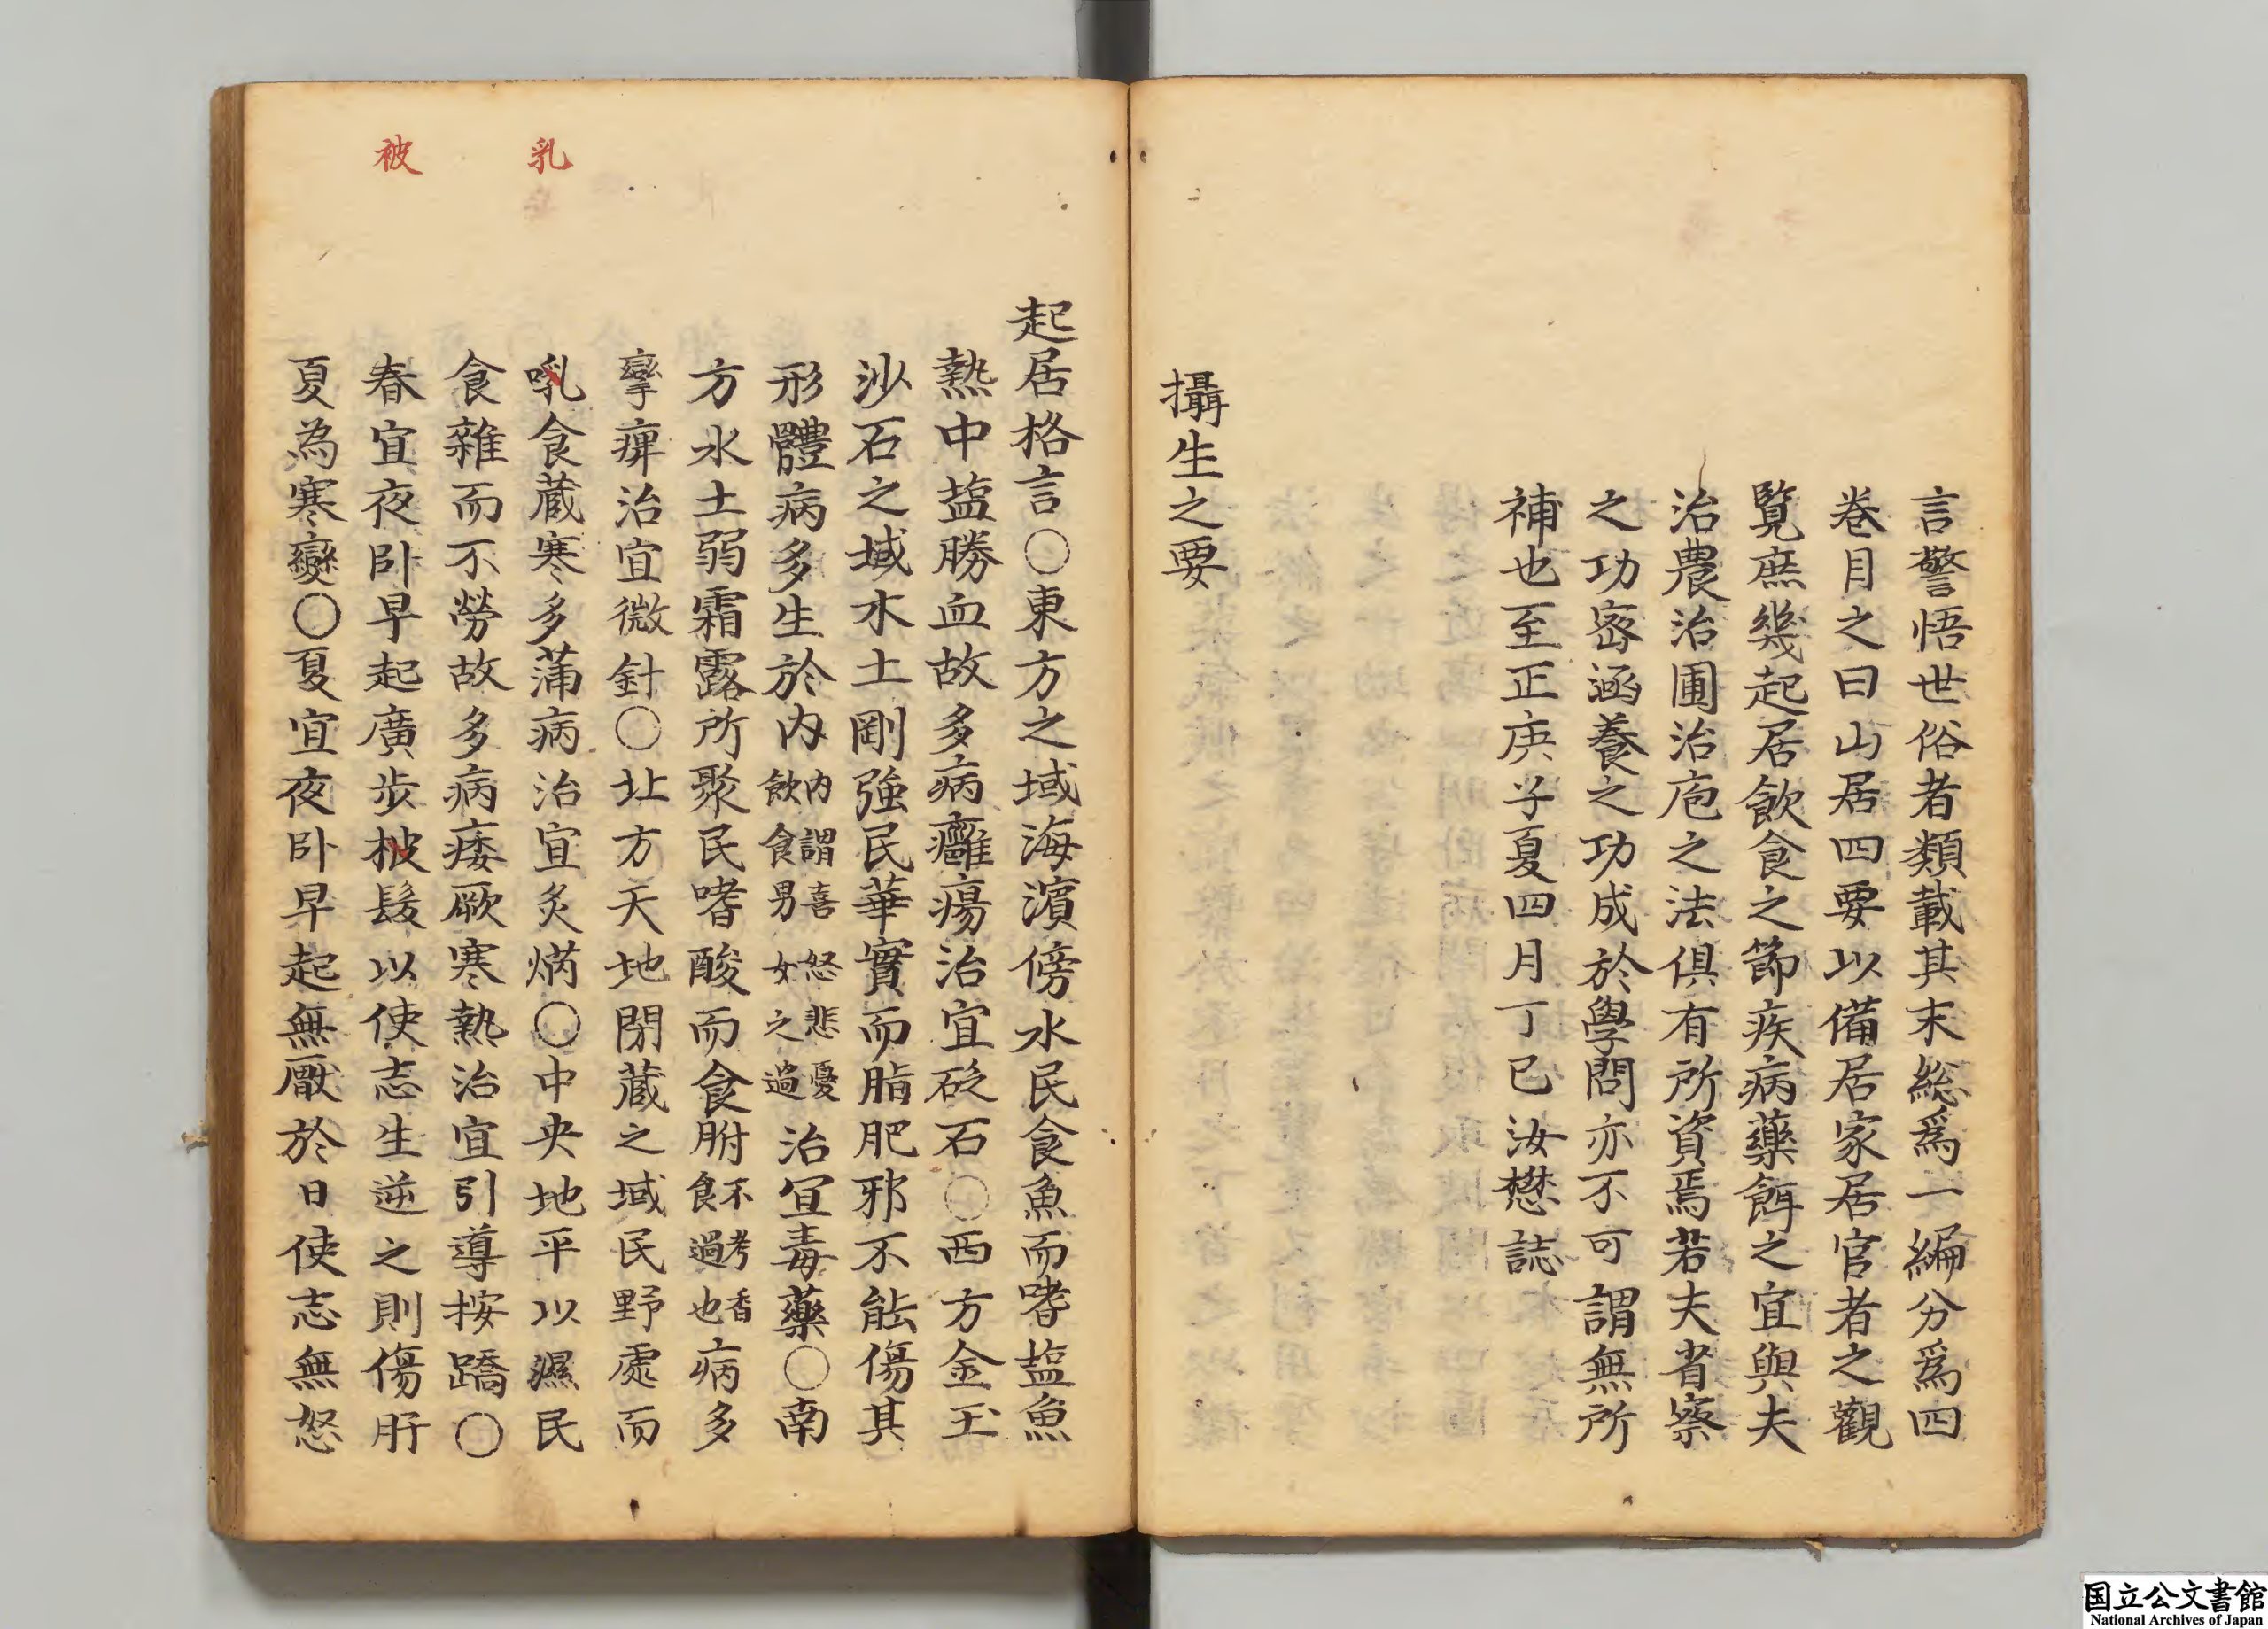 言警悟世俗者類載其末総爲一編分爲四
卷目之曰山居四要以備居家居官者之觀
覽庶幾起居飲食之節疾病藥餌之宜與夫
治農治圃治庖之法俱有所資焉若夫省察
之功密涵養之功成於學問亦不可謂無所
補也至正庚子夏四月丁巳汝懋誌
攝生之要
起居格言〇東方之域海濱傍水民食魚而嗜塩魚
熱中塩勝血故多病癰瘍治宜砭石〇西方金玉
沙石之域水土剛強民華實而脂肥邪不能傷其
形體病多生於内内謂喜怒悲憂飲食男女之過治宜毒藥〇南
方水土弱霜露所聚民嗜酸而食胕不考香食過也病多
攣痺治宜微針〇北方天地閉蔵之域民野處而
乳
㖡食蔵寒多蒲病治宜炙焫〇中央地平以濕民
食雜而不勞故多病痿厥寒熱治宜引導按蹻〇
被
春宜夜卧早起廣步柀髮以使志生逆之則傷肝
夏為寒變〇夏宜夜卧早起無厭於日使志無怒
国立公文書館
National Archives of Japan